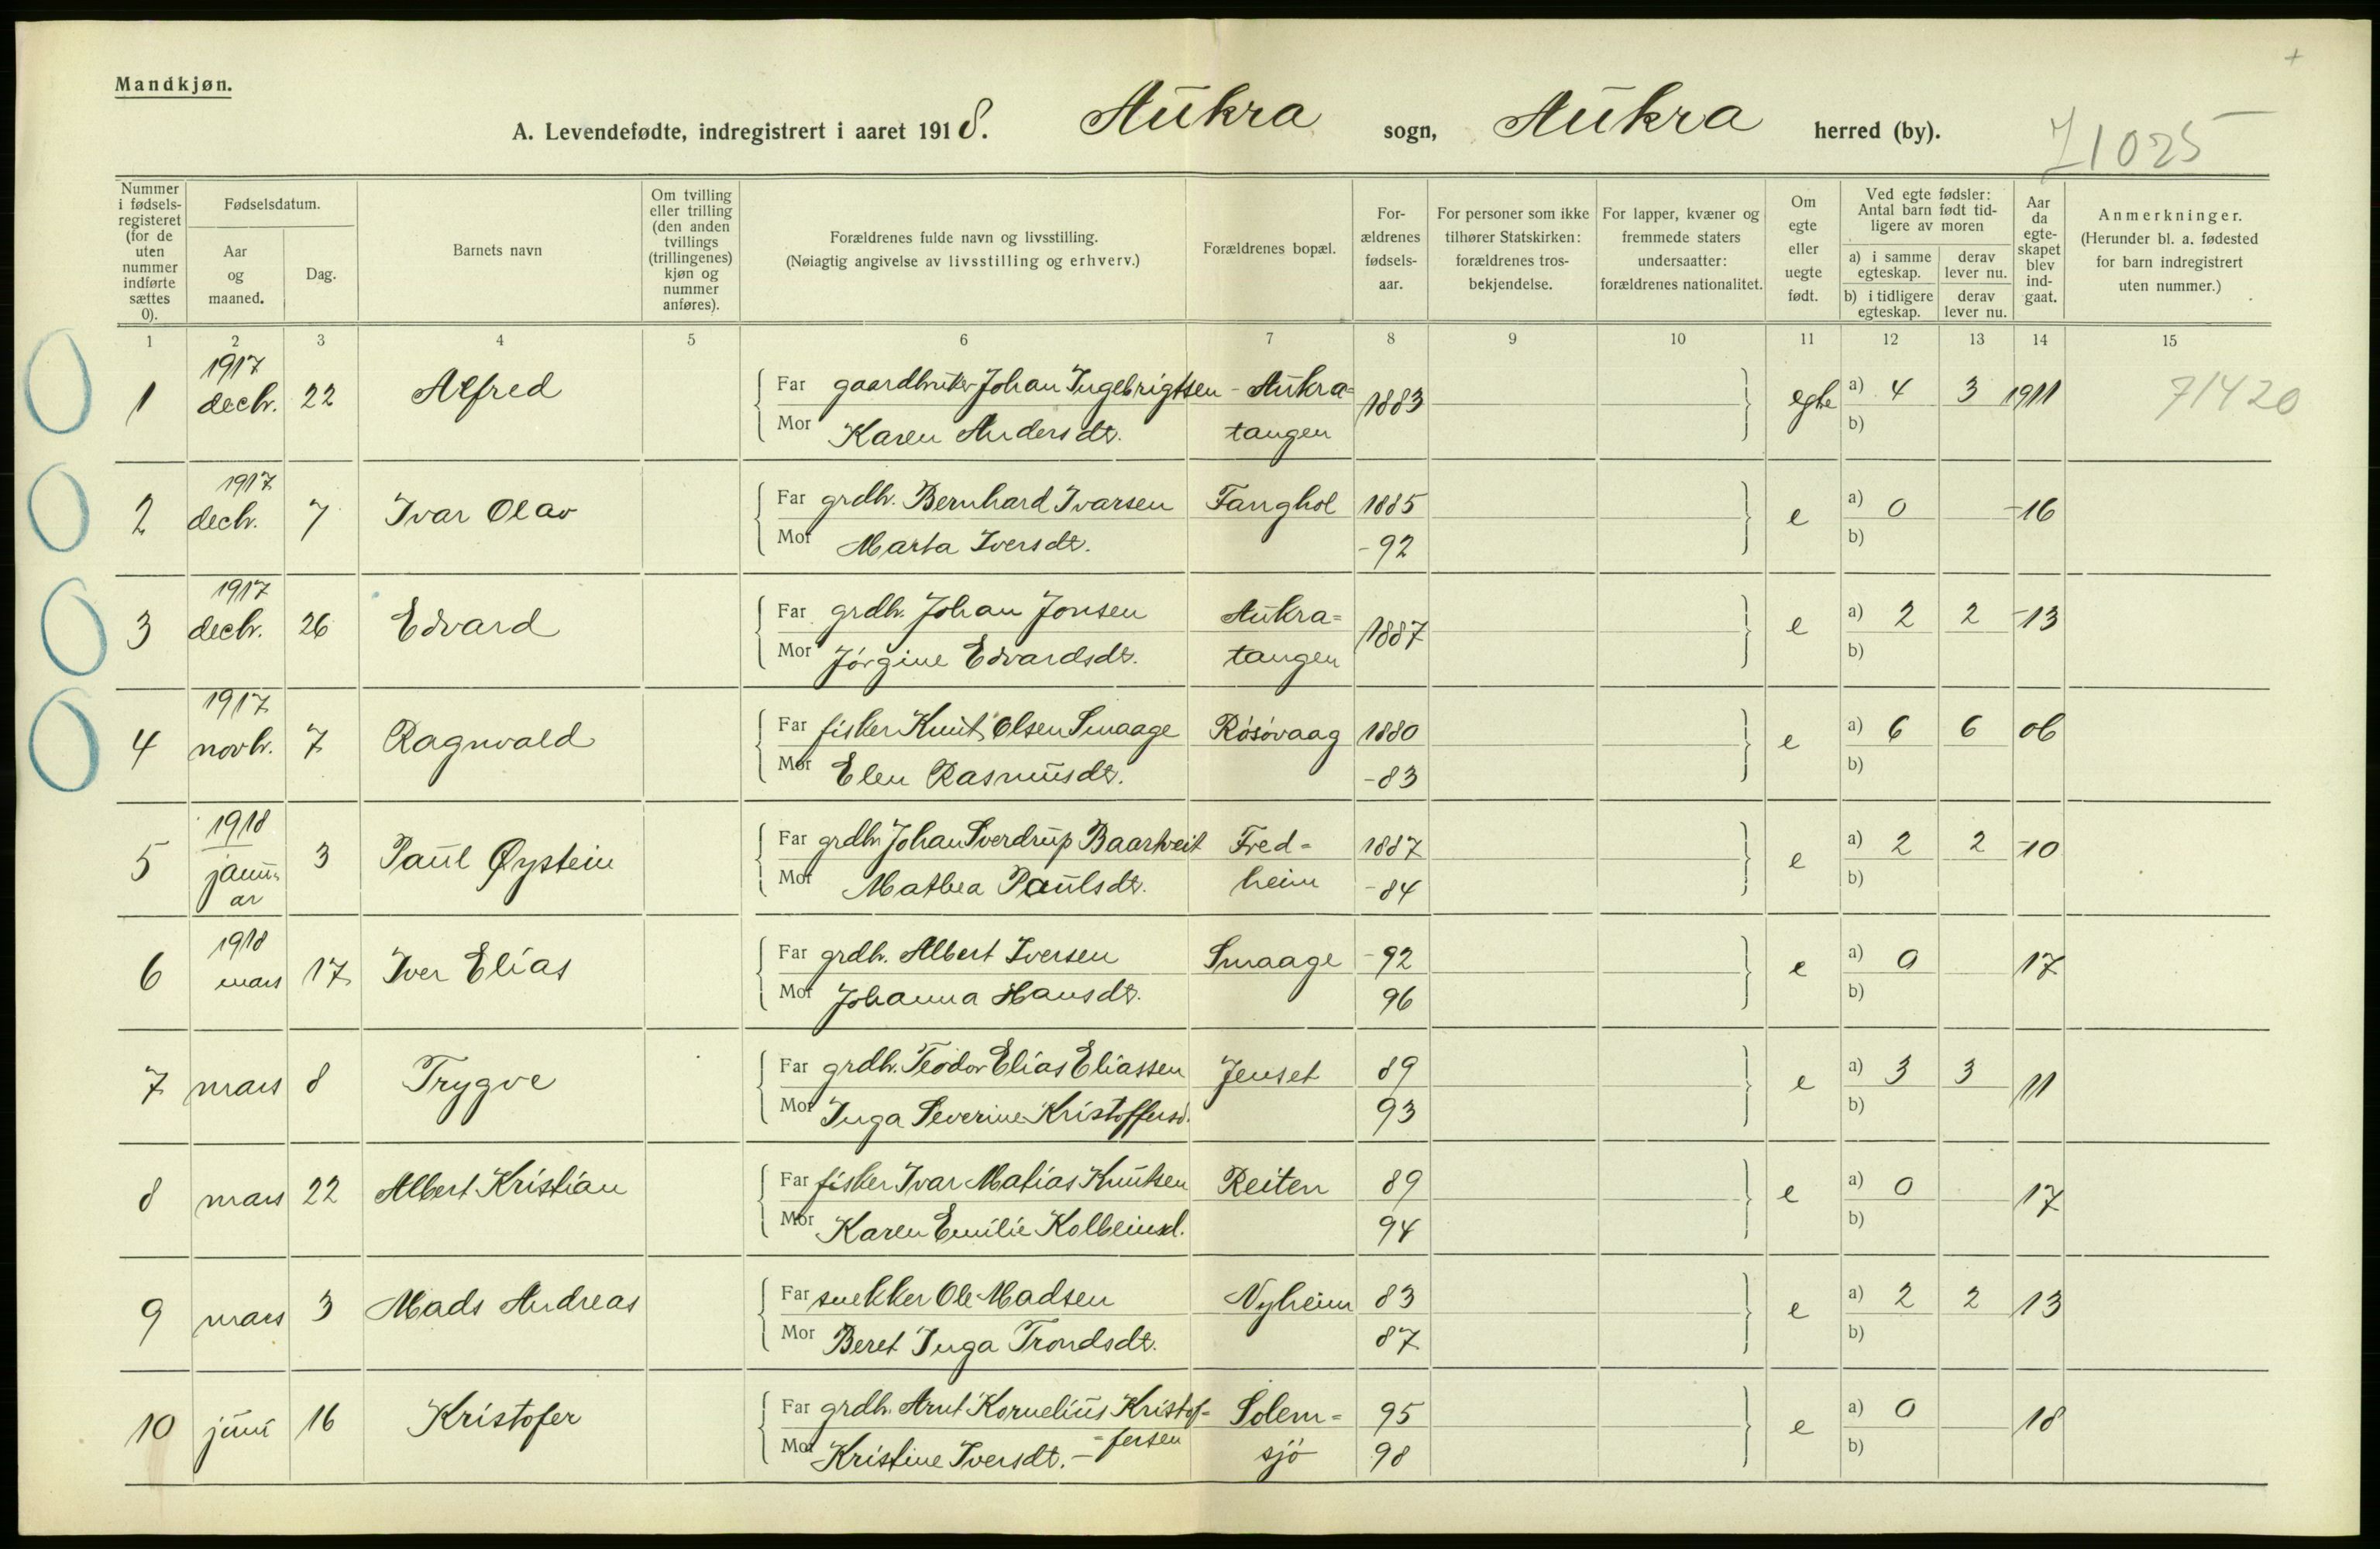 Mandkjøn.
A. Levendefødte, indregistrert i aaret 1918. Aukra sogn, Aukra herred (by).
71025
Nummer i fødselsregisteret (for de uten nummer indførte sættes 0).
Fødselsdatum.
Aar og maaned.
Dag.
Barnets navn
Om tvilling eller trilling (den anden tvillings (trillingenes) kjøn og nummer anføres).
Forældrenes fulde navn og livsstilling.
(Nøiagtig angivelse av livsstilling og erhverv.)
Forældrenes bopæl.
Forældrenes fødselsaar.
For personer som ikke tilhører Statskirken: forældrenes trosbekjendelse.
For lapper, kvæner og fremmede staters undersaatter: forældrenes nationalitet.
Om egte eller uegte født.
Ved egte fødsler: Antal barn født tidligere av moren
a) i samme egteskap.
derav lever nu.
b) i tidligere egteskap.
derav lever nu.
Aar da egteskapet blev indgaat.
Anmerkninger.
(Herunder bl. a. fødested for barn indregistrert uten nummer.)
1 2 3 4 5 6 7 8 9 10 11 12 13 14 15
1 1917 decbr. 22 Alfred Far gaardbruker Johan Ingebrigtsen - Aukra= 1883 egte a) 4 3 1911 71420
Mor Karen Andersdt. tangen b)
2 1917 decbr. 7 Ivar Olav Far grdbr. Bernhard Ivarsen Fanghol 1885 e a) 0 -16
Mor Marta Iversdt. -92 b)
3 1917 decbr. 26 Edvard Far grdbr. Johan Jonsen Aukra= 1887 e a) 2 2 -13
Mor Jørgine Edvardsdt. tangen b)
4 1917 novbr. 7 Ragnvald Far fisker Knut Olsen Smaage Røsøvaag 1880 e a) 6 6 06
Mor Elen Rasmusdt. -83 b)
5 1918 januar 3 Paul Øystein Far grdbr. Johan Sverdrup Baartveit Fred= 1887 e a) 2 2 -10
Mor Mathea Paulsdt. heim -84 b)
6 1918 mars 17 Iver Elias Far grdbr. Albert Iversen Smaage -92 e a) 0 17
Mor Johanna Hansdt. 96 b)
7 mars 8 Trygve Far grdbr. Teodor Elias Eliassen Jenset 89 e a) 3 3 11
Mor Inga Severine Kristoffersd. 93 b)
8 mars 22 Albert Kristian Far fisker Ivar Matias Knutsen Reiten 89 e a) 0 17
Mor Karen Emilie Kolbeinsd. 94 b)
9 mars 3 Mads Andreas Far snekker Ole Madsen Nyheim 83 e a) 2 2 13
Mor Beret Inga Trondsdt. 87 b)
10 juni 16 Kristofer Far grdbr. Arnt Kornelius Kristof= Solem= 95 e a) 0 18
Mor Kristine Iversdt. - =fersen sjø 98 b)